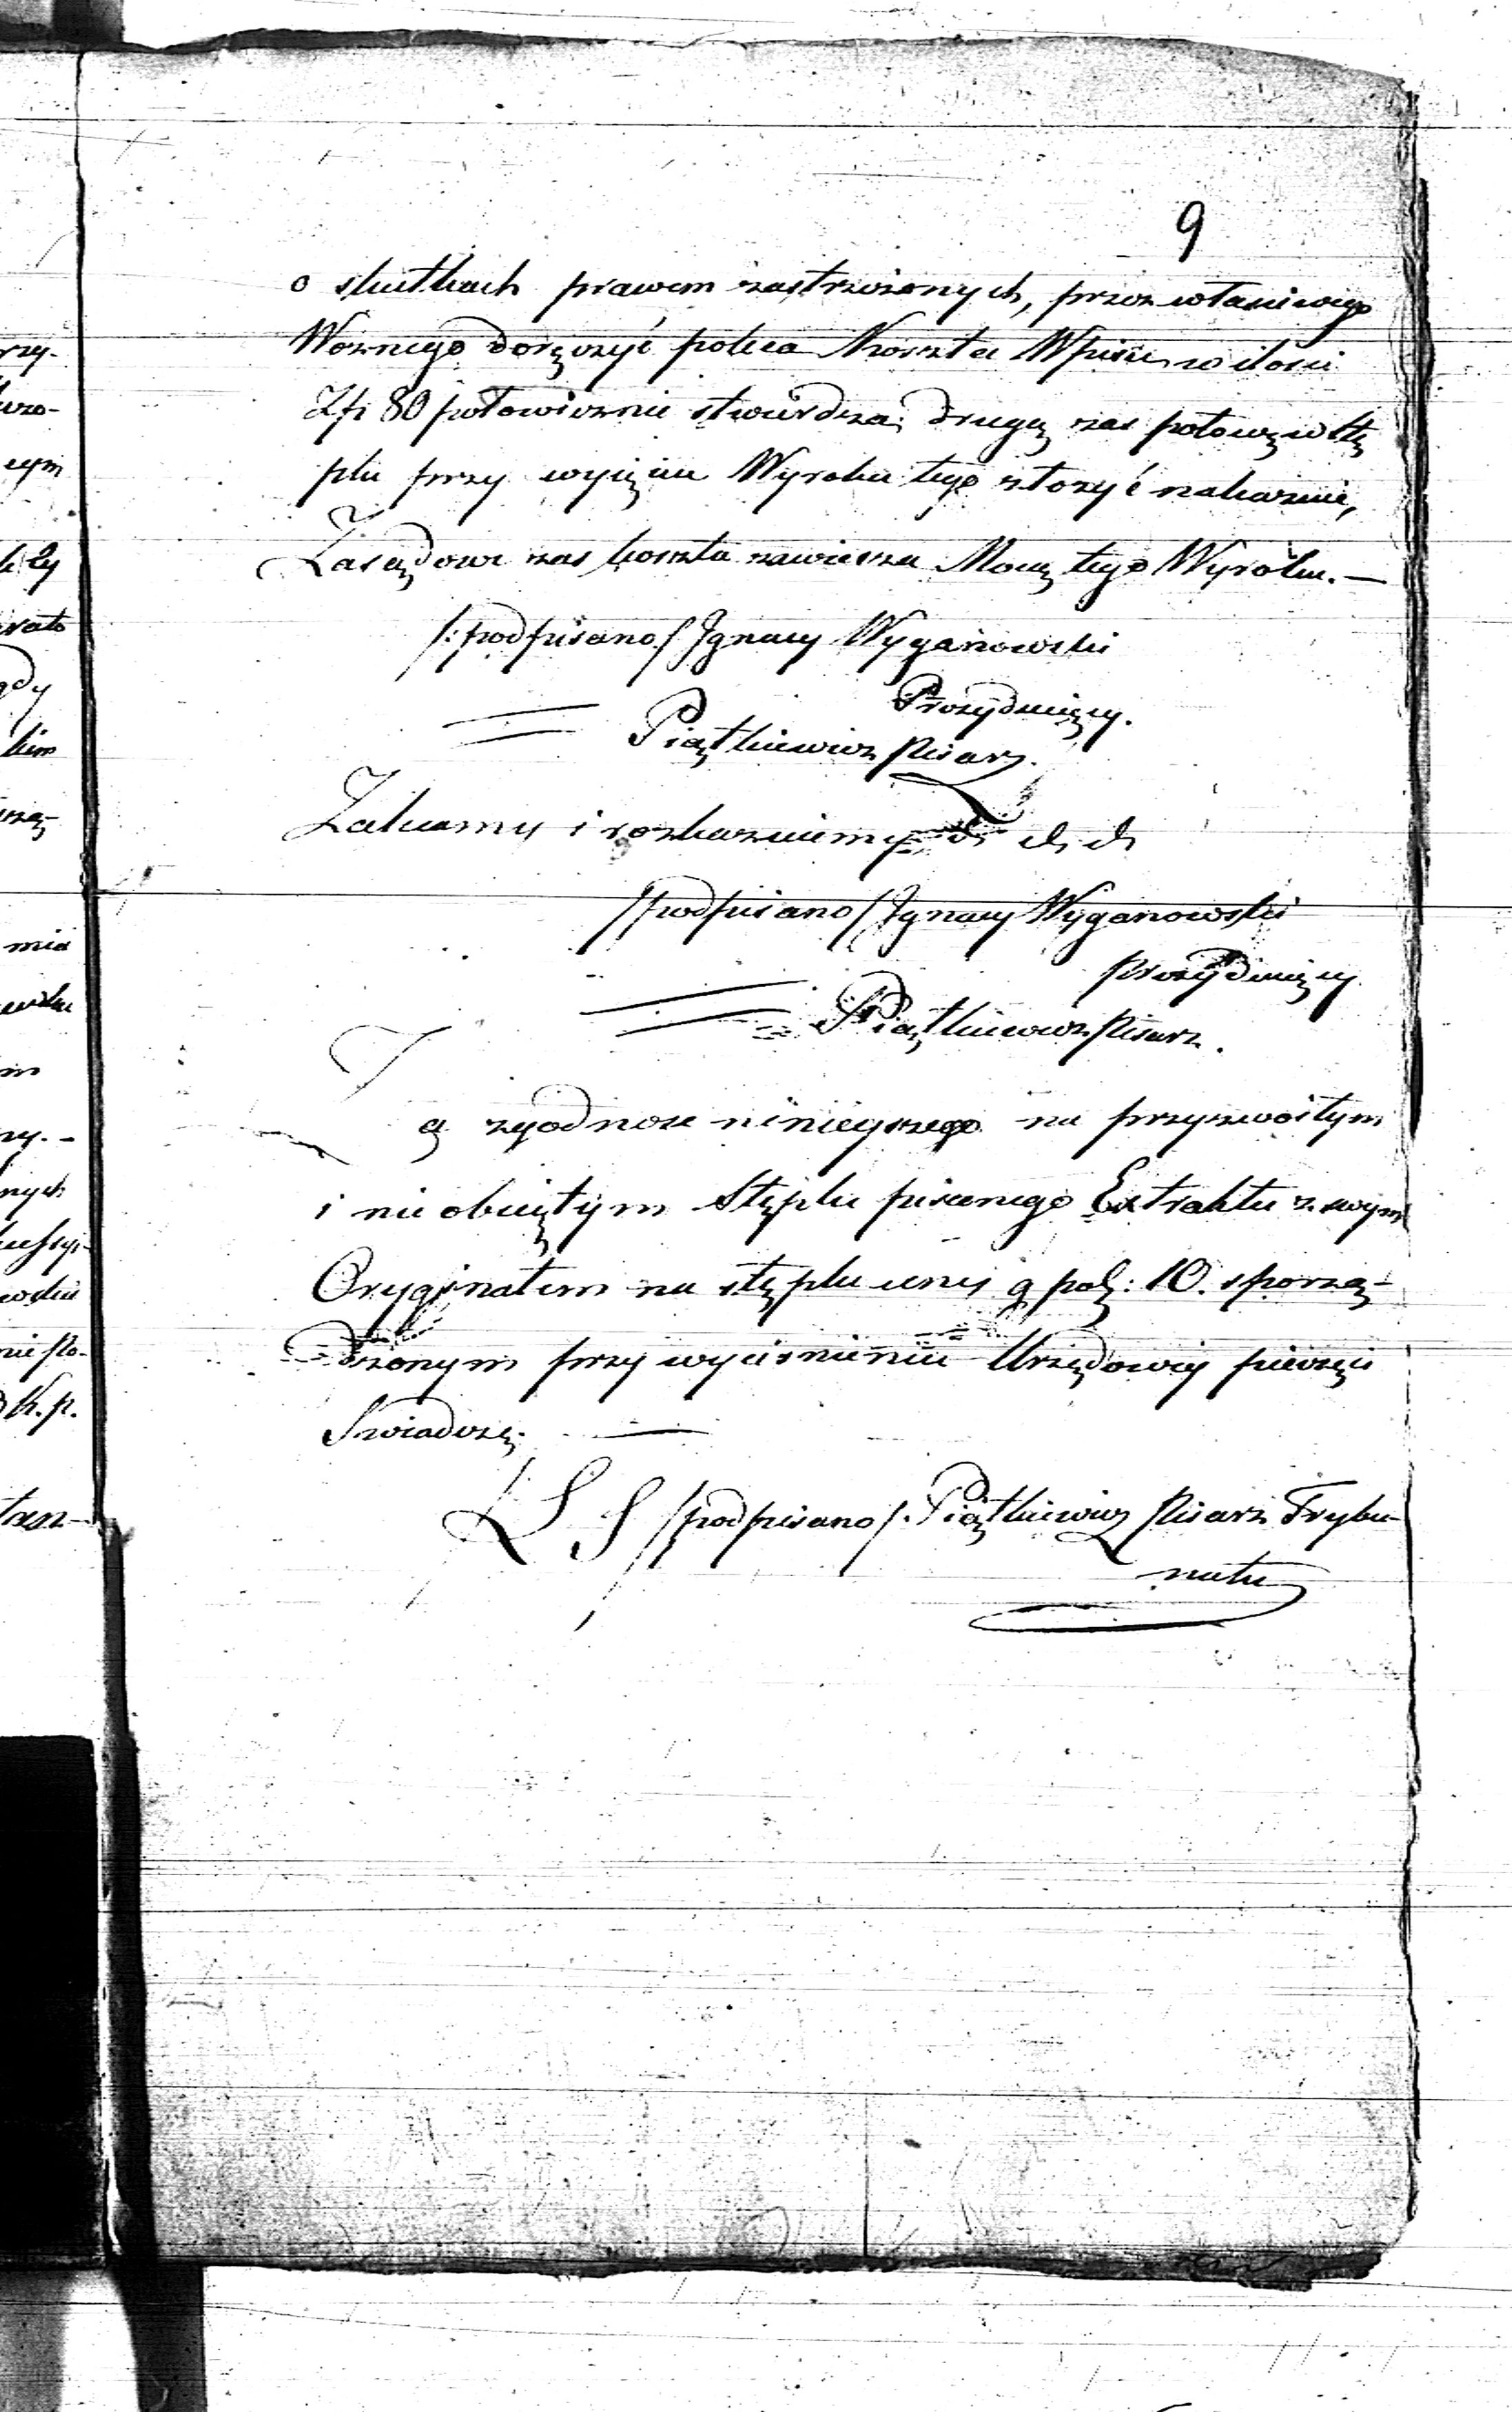 9
o skutkach prawem zastrzeżonych, przez właściwego
Woznego doręczyć poleca Koszta Wpisu w ilości
Zł 80 połowicznie stwierdza, drugą zas połowę w stę
plu przy wyięciu Wyroku tego złożyć nakazuie,
Zasądowe zas koszta zawiesza Mocą tego Wyroku. —
/:podpisano/ Ignacy Wyganowski
Prezyduiący.
Piątkiewicz Pisarz.
Zalecamy i rozkazuiemy
/podpisano/ Ignacy Wyganowski
Prezyduiący
Piątkiewicz Pisarz.
zgodnosc ninieyszego na przyzwoitym
i nieobciętym Stęplu pisanego Extraktu z swym
Oryginałem na stęplu ceny 10. sporzą-
dzonym przy wyciśnieniu Urzędowey pieczęci
Swiadczę. —
L S /podpisano/. Piątkiewicz Pisarz Trybu-
nału
rzy-
czo-
cym
gdy
kim
szą-
mia
zy. -
nych
K. p.